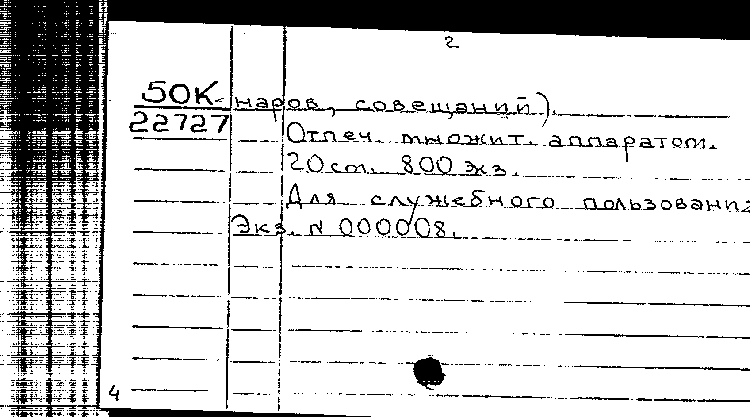 2
50К-
22727
наров, совещаний).
Отпеч. множит. аппаратом.
20 ст. 800 экз.
Для служебного пользования
Экз. N 000008.
4